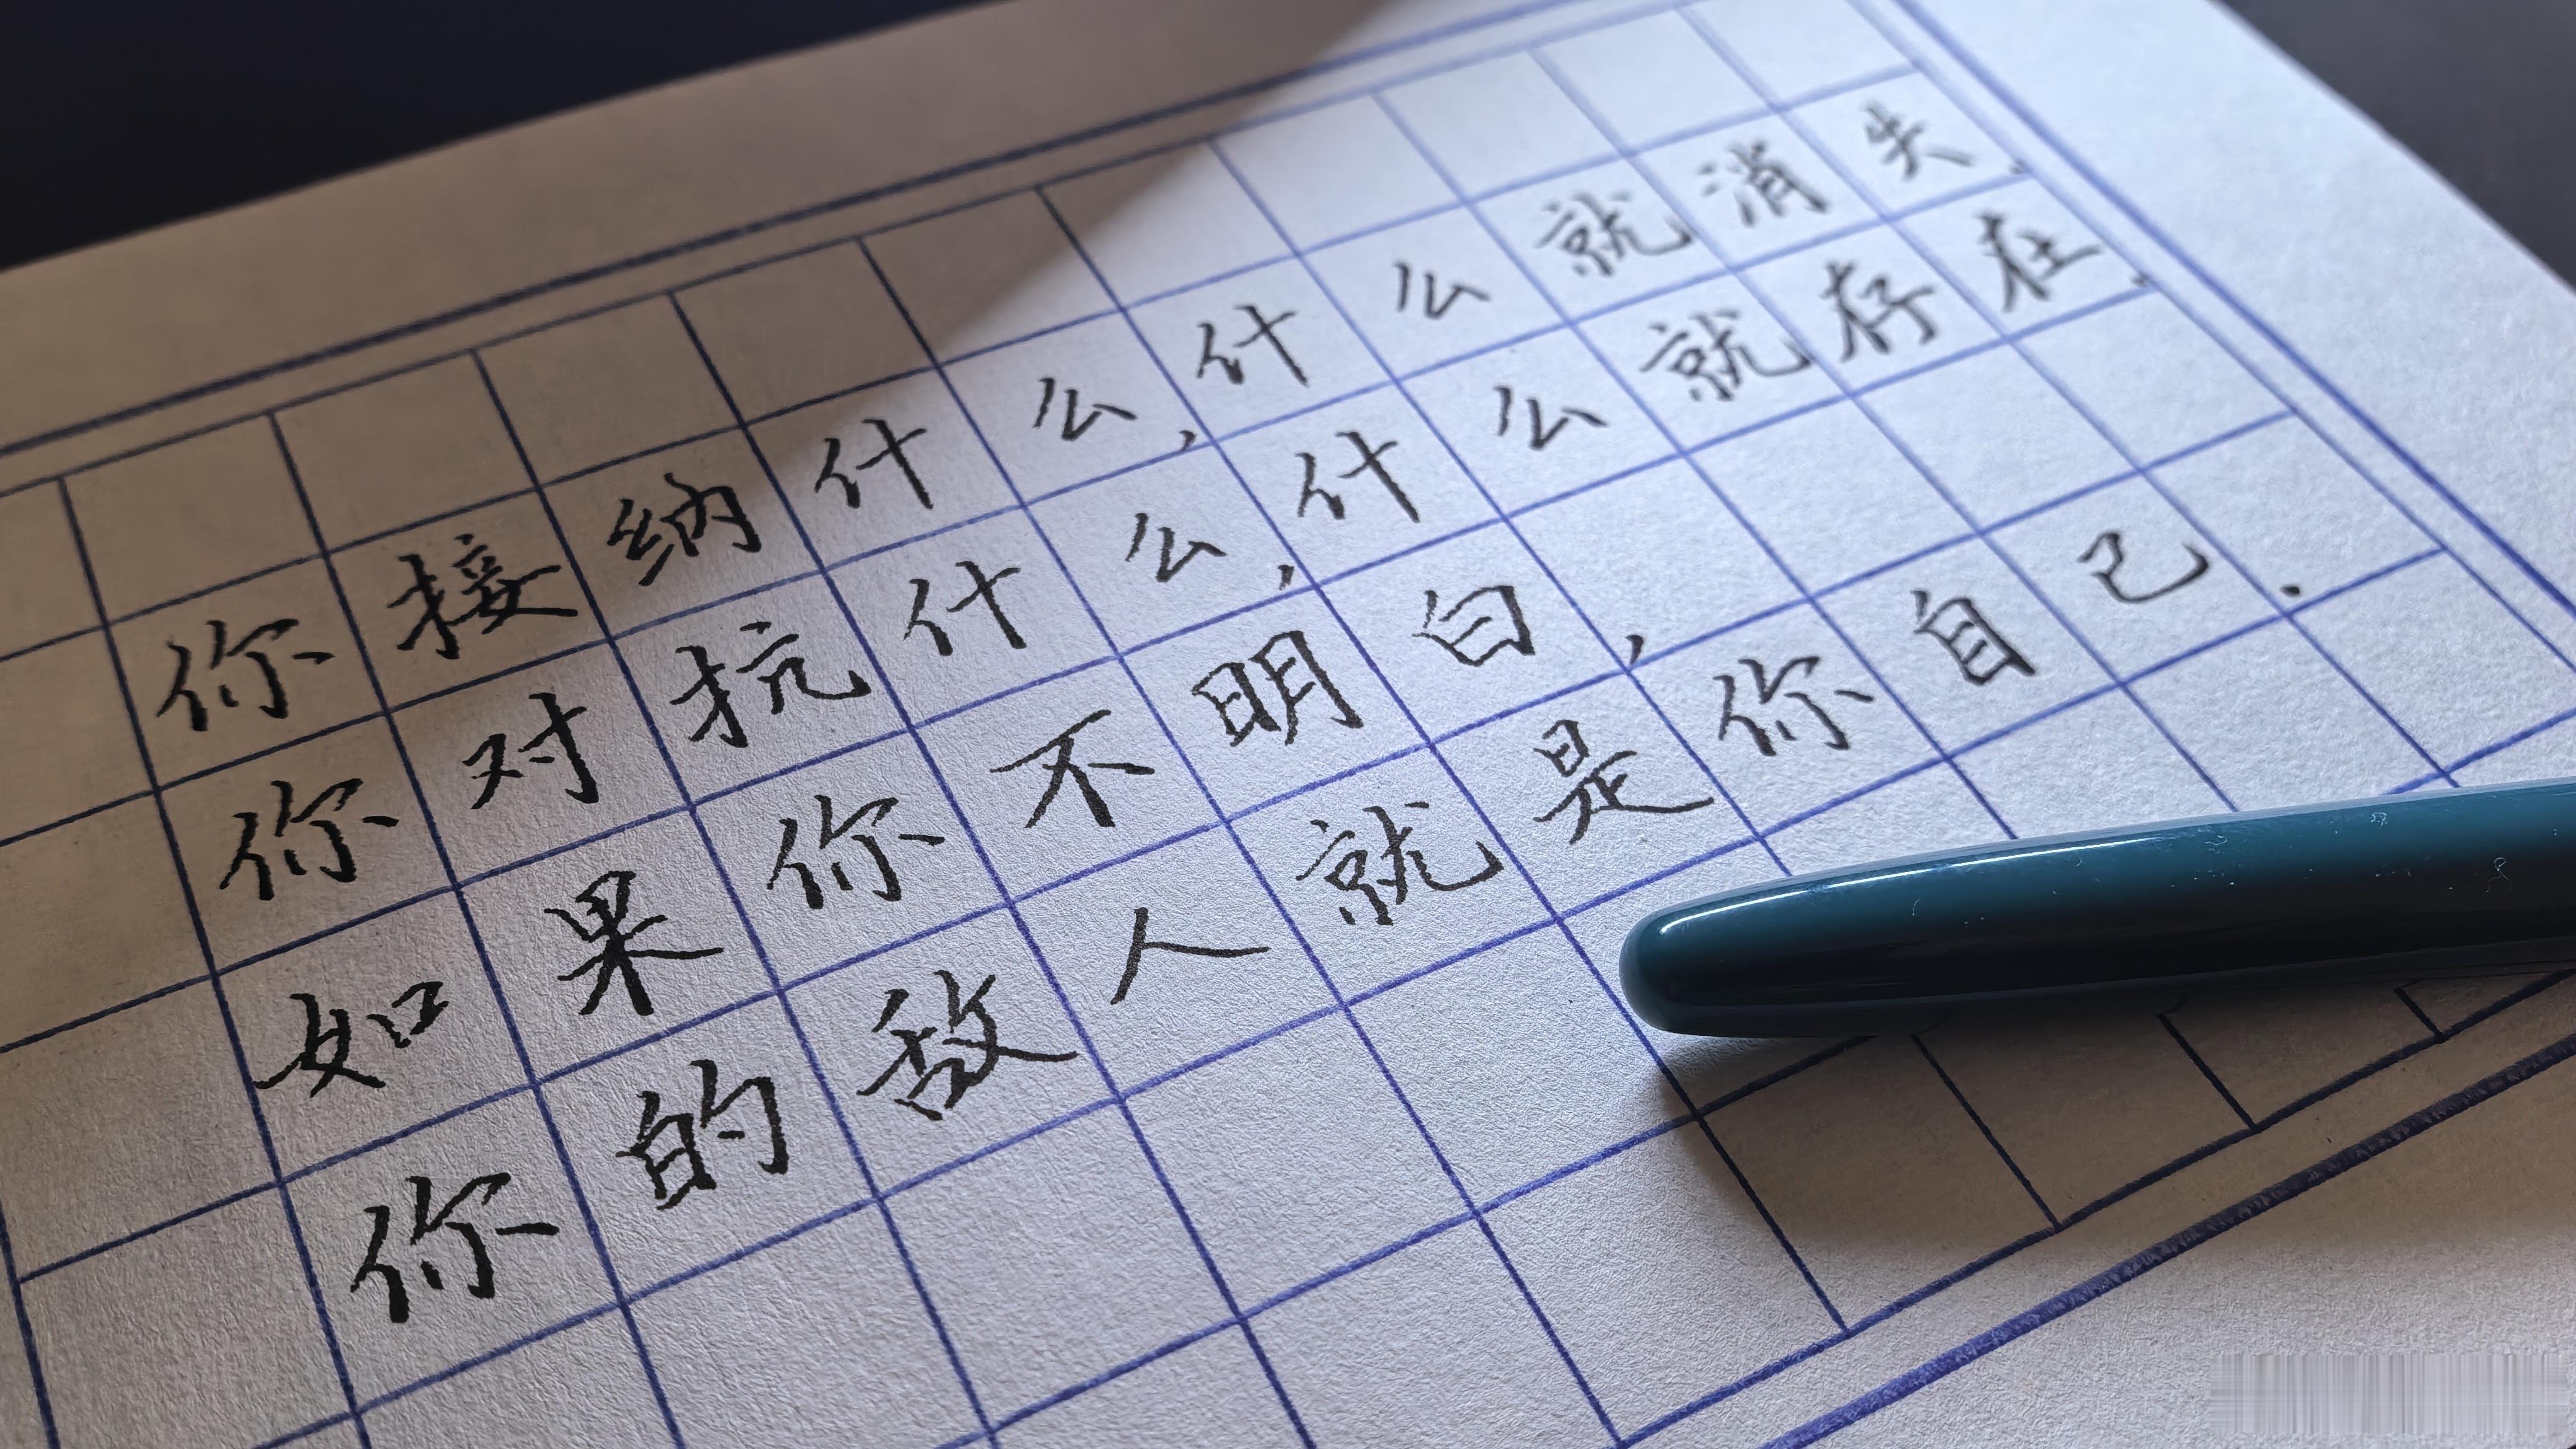 你接纳什么,什么就消失.
你对抗什么,什么就存在.
如果你不明白,
你的敌人就是你自己.